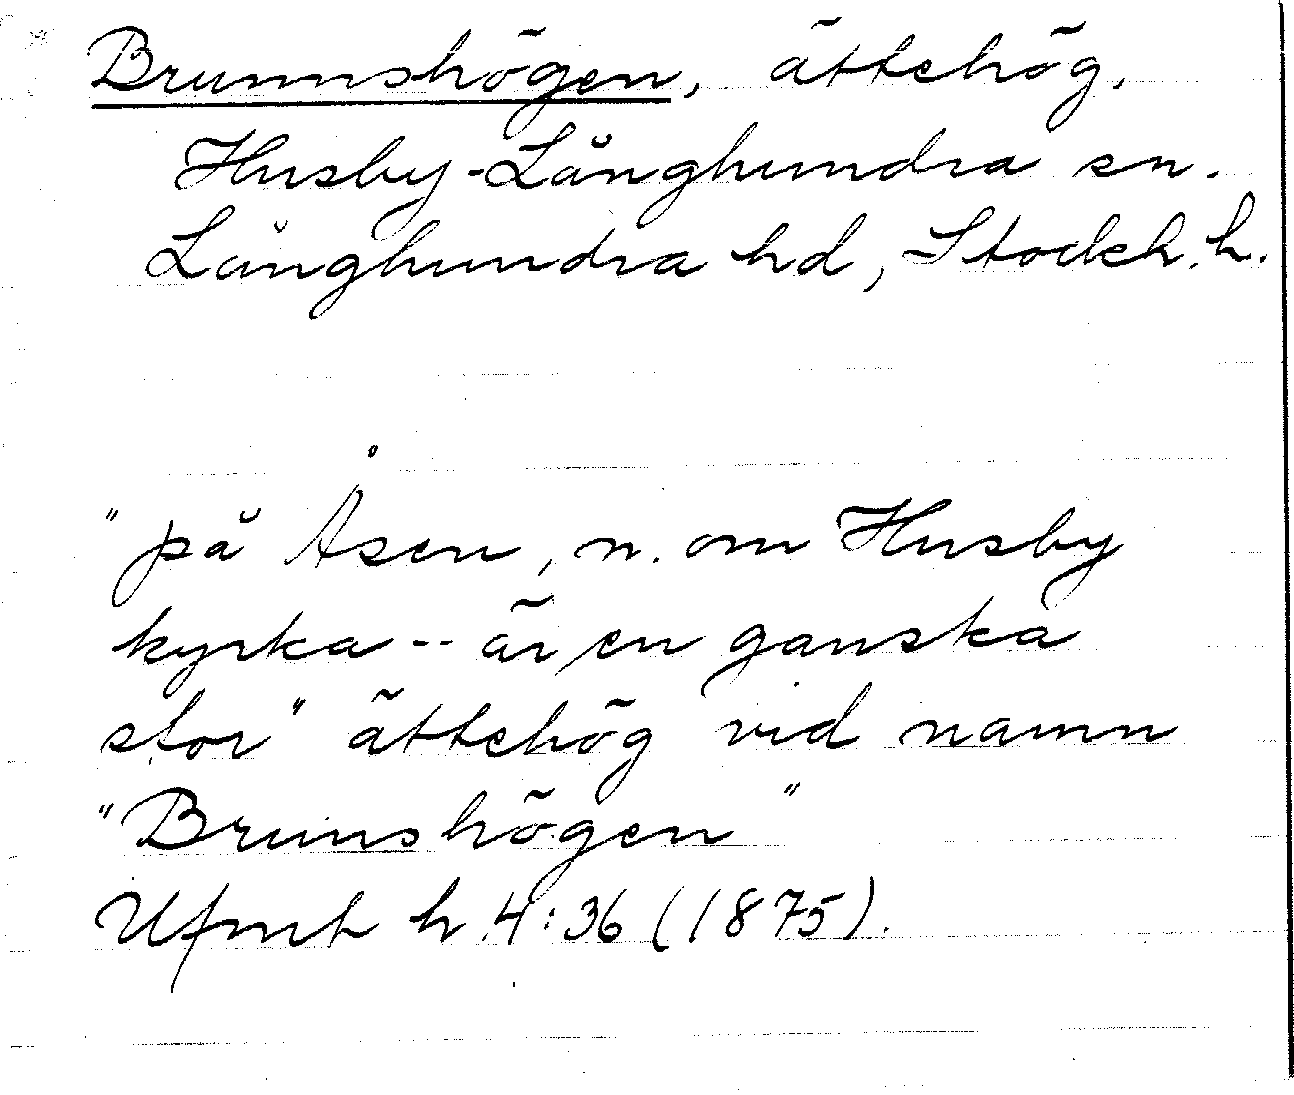 Brunnshögen, ättehög,
Husby-Långhundra sn.
Långhundra hd, Stockh. h.
"på Åsen, n. om Husby
kyrka -- är en ganska
stor" ättehög vid namn
"Brunshögen"
Ufmt h. 4:36 (1875).